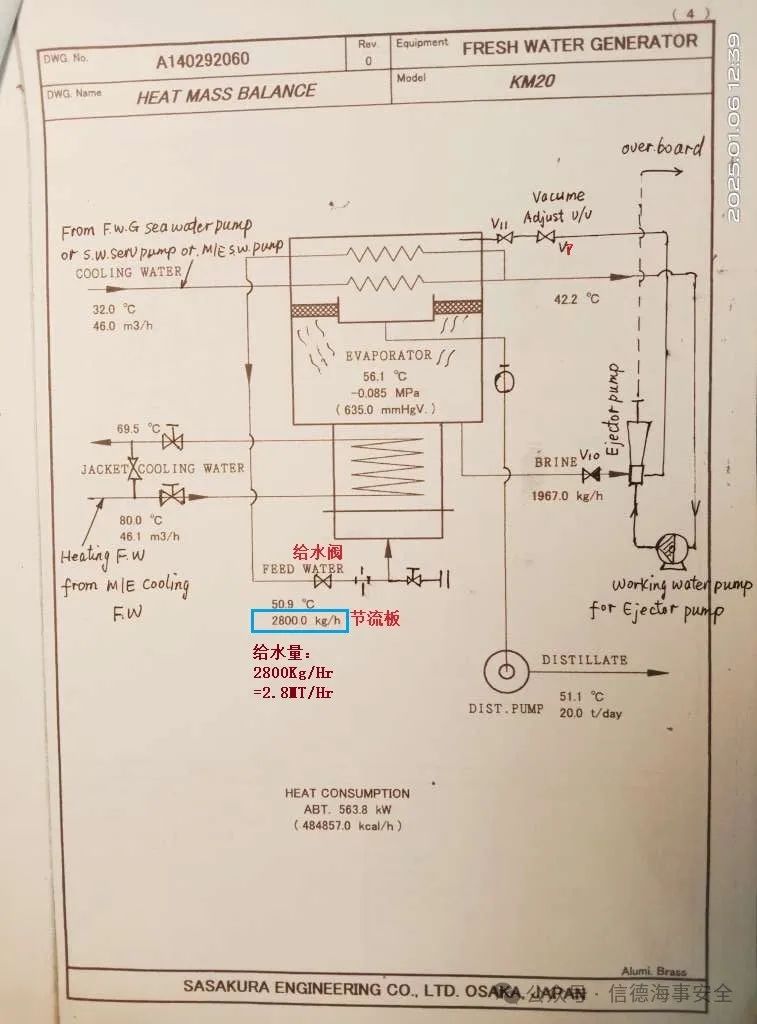 ( 4 )
DWG. No.
A140292060
Rev.
0
Equipment
FRESH WATER GENERATOR
DWG. Name
HEAT MASS BALANCE
Model
KM20
2025.01.06 12:39
over.board
Vacume
Adjust V/V
V11
V7
From F.W.G sea water pump
or S.W. serv pump or M/E S.W. pump
COOLING WATER
32.0 °C
46.0 m3/h
42.2 °C
EVAPORATOR
56.1 °C
-0.085 MPa
( 635.0 mmHgV. )
Ejector pump
69.5 °C
JACKET COOLING WATER
80.0 °C
46.1 m3/h
BRINE
V10
1967.0 kg/h
Heating F.W
from M/E Cooling
F.W
给水阀
FEED WATER
50.9 °C
2800.0 kg/h
节流板
给水量：
2800Kg/Hr
=2.8MT/Hr
Working water pump
for Ejector pump
DISTILLATE
51.1 °C
20.0 t/day
DIST. PUMP
HEAT CONSUMPTION
ABT. 563.8 kW
( 484857.0 kcal/h )
Alumi. Brass
SASAKURA ENGINEERING CO., LTD. OSAKA, JAPAN
公众号 · 信德海事安全